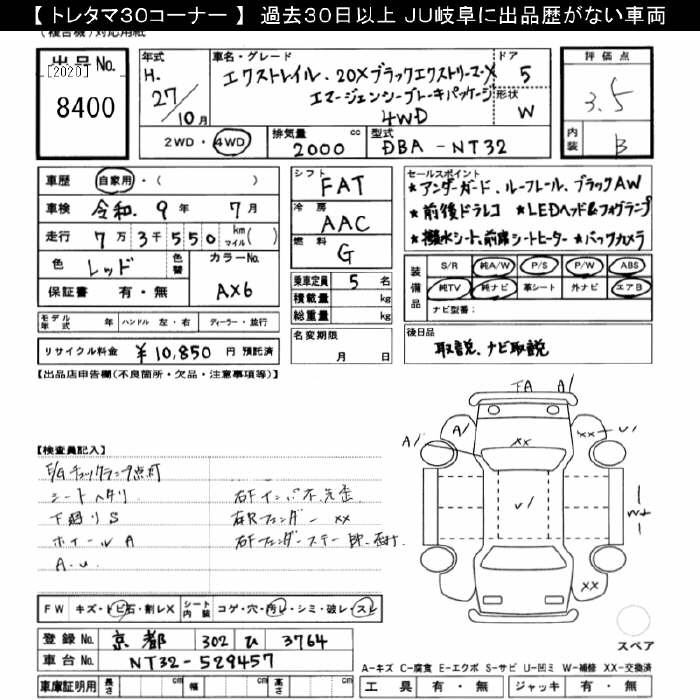 【 トレタマ30コーナー 】 過去30日以上 JU岐阜に出品歴がない車両
(複合機)対応用紙
出品No. [2020] 8400
年式 H. 27/10月
車名・グレード エクストレイル、20Xブラックエクストリーマー-X エマージェンシーブレーキパッケージ 4WD
ドア 5
形状 W
評価点 3.5
内装 B
2WD・4WD
排気量 2000 cc
型式 DBA-NT32
車歴 自家用・( )
車検 令和.9年 7月
走行 7万3千550 km マイル( )
色 レッド 色替 カラーNo. AX6
保証書 有・無
シフト FAT
冷房 AAC
燃料 G
乗車定員 5 名
積載量 kg
総重量 kg
セールスポイント
★アンダーガード、ルーフレール、ブラックAW
★前後ドラレコ ★LEDヘッド&フォグランプ
★撥水シート、前席シートヒーター ★バックカメラ
装備品 S/R 純A/W P/S P/W ABS
純TV 純ナビ 革シート 外ナビ エアB
ナビ型番:
モデル年式 年 ハンドル 左・右 ディーラー・並行
名変期限 月 日
後日品 取説、ナビ取説
リサイクル料金 ¥10,850 円 預託済
【出品店申告欄(不良箇所・欠品・注意事項等)】
FA A/
【検査員記入】
A/ A/ XX XX U/
E/Gチェックランプ点灯
シートヘタリ 右Fインパネ先歪
下廻りS 右Rフェンダー XX
ホイールA 右Fフェンダーステー
A.U.
U/ W+
XX
FW キズ・トビ石・割レX シート内装 コゲ・穴・汚レ・シミ・破レ・スレ
登録No. 京都 302 ひ 3764
車台No. NT32-529457
スペア
A-キズ C-腐食 E-エクボ S-サビ U-凹ミ W-補修 XX-交換済
車庫証明用 長さ cm 幅 cm 高さ cm 工具 有・無 ジャッキ 有・無